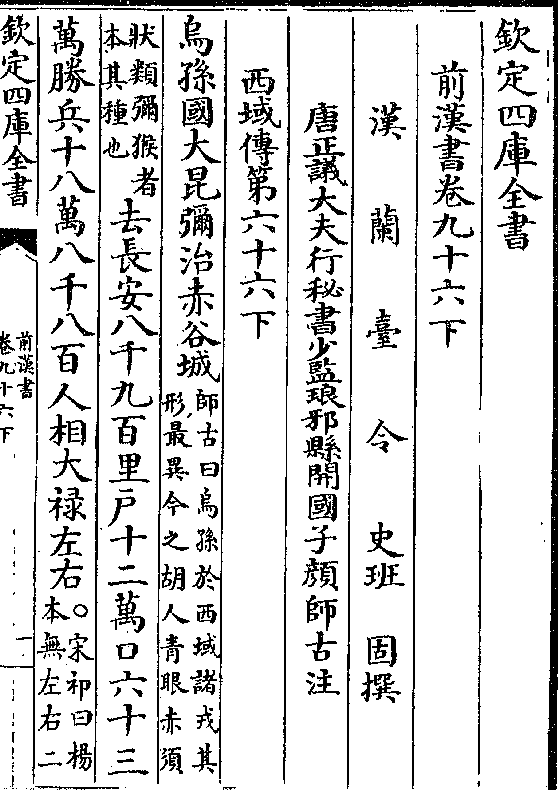 欽定四庫全書
前漢書卷九十六下
漢蘭臺令史班固撰
唐正議大夫行秘書少監琅邪縣開國子顔師古注
西域傳第六十六下
烏孫國大昆彌治赤谷城師古曰烏孫於西域諸戎其
形最異今之胡人青眼赤須
狀類彌猴者
本其種也去長安八千九百里户十二萬口六十三
萬勝兵十八萬八千八百人相大禄左右○宋祁曰楊
本無左右二
欽定四庫全書
前漢書
卷九十六下
一